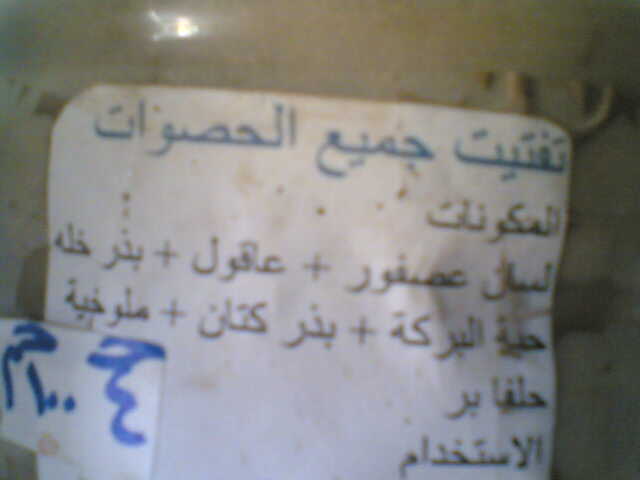 تفتيت جميع الحصوات
المكونات
لسان عصفور + عاقول + بذر خله
حبة البركة + بذر كتان + ملوخية
حلفا بر
الاستخدام